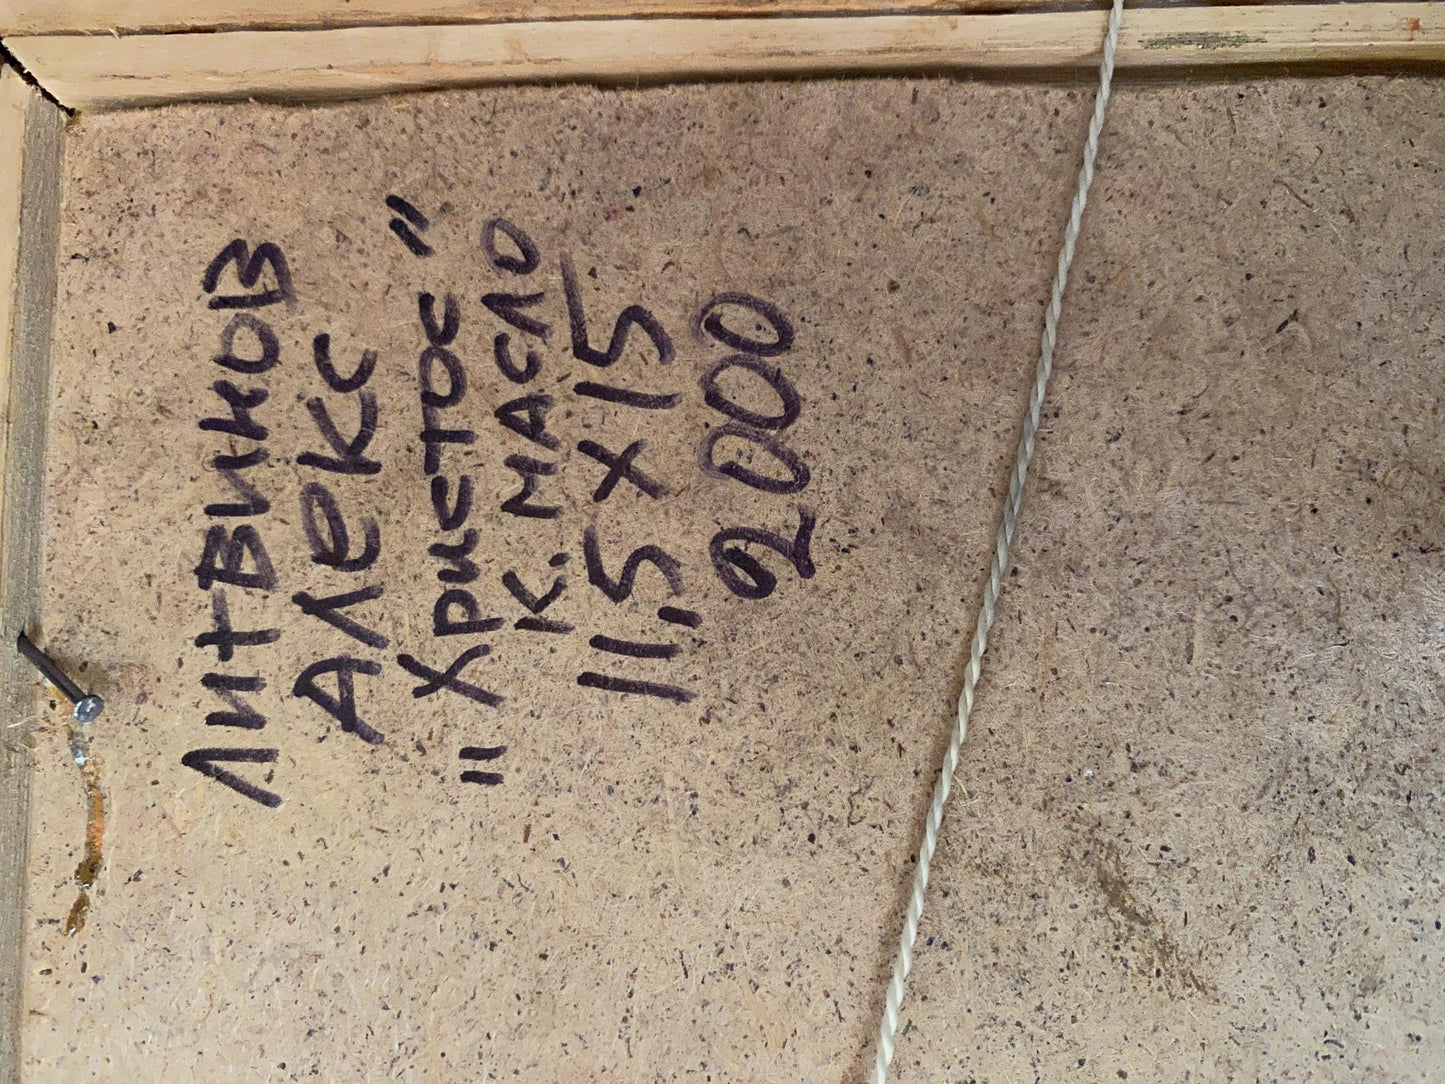 ЛИТВИНОВ
АЛЕКС
"Христос"
К. МАСЛО
11,5 х 15
2000